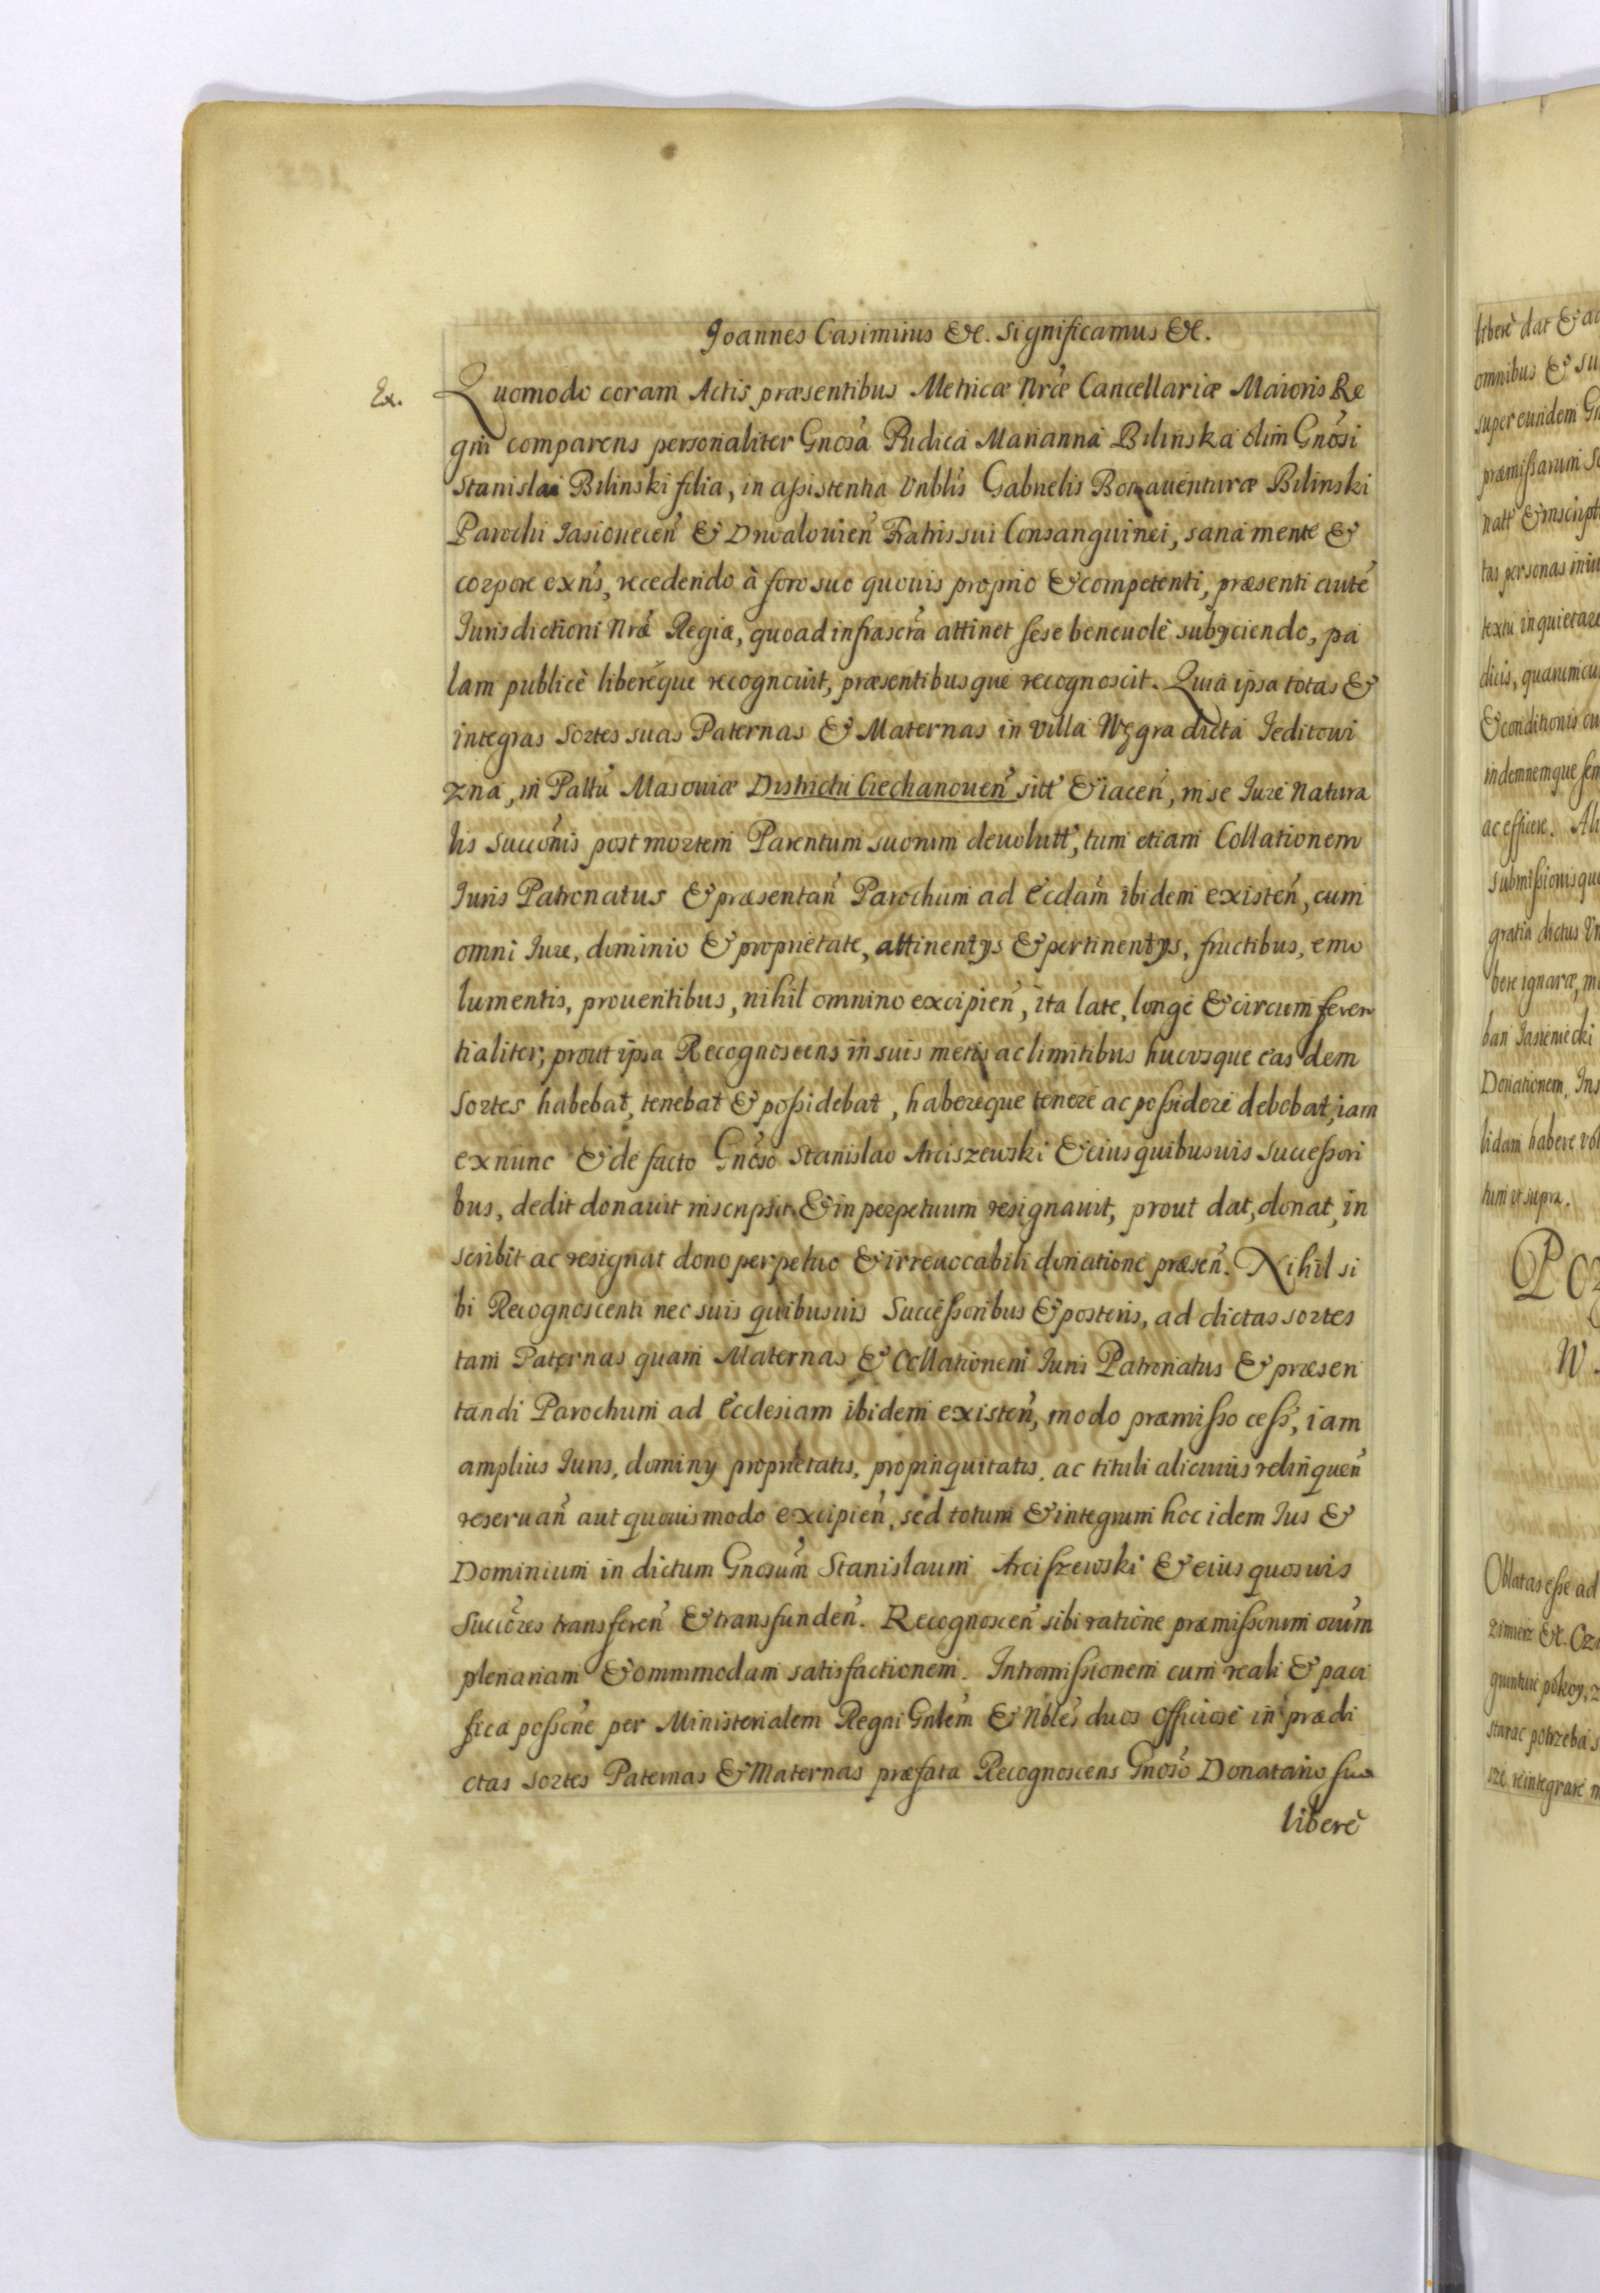 Joannes Casimirus &c. Significamus &c.
Ex.
Quomodo coram Actis præsentibus Metricæ Nrǽ Cancellariæ Maioris Re
gni comparens personaliter Gnosa Pudica Marianna Bilinska olim Gnosi
Stanislai Bilinski filia, in assistentia Vnblis Gabrielis Bonauenturæ Bilinski
Parochi Jasioneceń & Drwalouień Fratris sui Consanguinei, sana mente &
corpore exńs, recedendo à foro suo quouis proprio & competenti, præsenti autē
Jurisdictioni Nrǽ Regiæ, quoad infrascrā attinet sese beneuolè subyciendo, pa
lam publicè liberéque recognouit, præsentibusque recognoscit. Quia ipsa totas &
integras sortes suas Paternas & Maternas in villa Wegra dicta Jeditowi
zna, in Paltu Masouiæ Districtu Ciechanoueń sitt & iaceń, in se Jure Natura
lis Succonis post mortem Parentum suorum deuolutt, tum etiam Collationem
Juris Patronatus & præsentań Parochum ad Eccłam ibidem existeń, cum
omni Jure, dominio & proprietate, attinentys & pertinentys, fructibus, emo
lumentis, prouentibus, nihil omnino excipień, ita late, longe & circumferen
tialiter, prout ipsa Recognoscens in suis metis ac limitibus hucusque eas dem
Sortes habebat, tenebat & possidebat, habereque tenere ac possidere debebat, iam
ex nunc & de facto Gnoso Stanislao Arciszewski & eius quibusuis Successori
bus, dedit donauit inscripsit & in perpetuum resignauit, prout dat, donat, in
scribit ac resignat dono perpetuo & irreuocabili donatione præseń. Nihil si
bi Recognoscenti nec suis quibusuis Successoribus & posteris, ad dictas sortes
tam Paternas quam Maternas & Collationem Juris Patronatus & præsen
tandi Parochum ad Ecclesiam ibidem existeń, modo præmisso cess, iam
amplius Juris, dominy proprietatis, propinquitatis, ac tituli alicuius relinqueń
reseruań aut quouismodo excipień, sed totum & integrum hoc idem Jus &
Dominium in dictum Gnosum Stanislaum Arciszewski & eius quosuis
Succores transfereń & transfundeń. Recognosceń sibi ratione præmissorum oium
plenariam & omnimodam satisfactionem. Intromissionem cum reali & paci
fica possone per Ministerialem Regni Gnlem & Nobles duos officiose in prædi
ctas sortes Paternas & Maternas præfata Recognoscens Gnoso Donatario suo
liberè